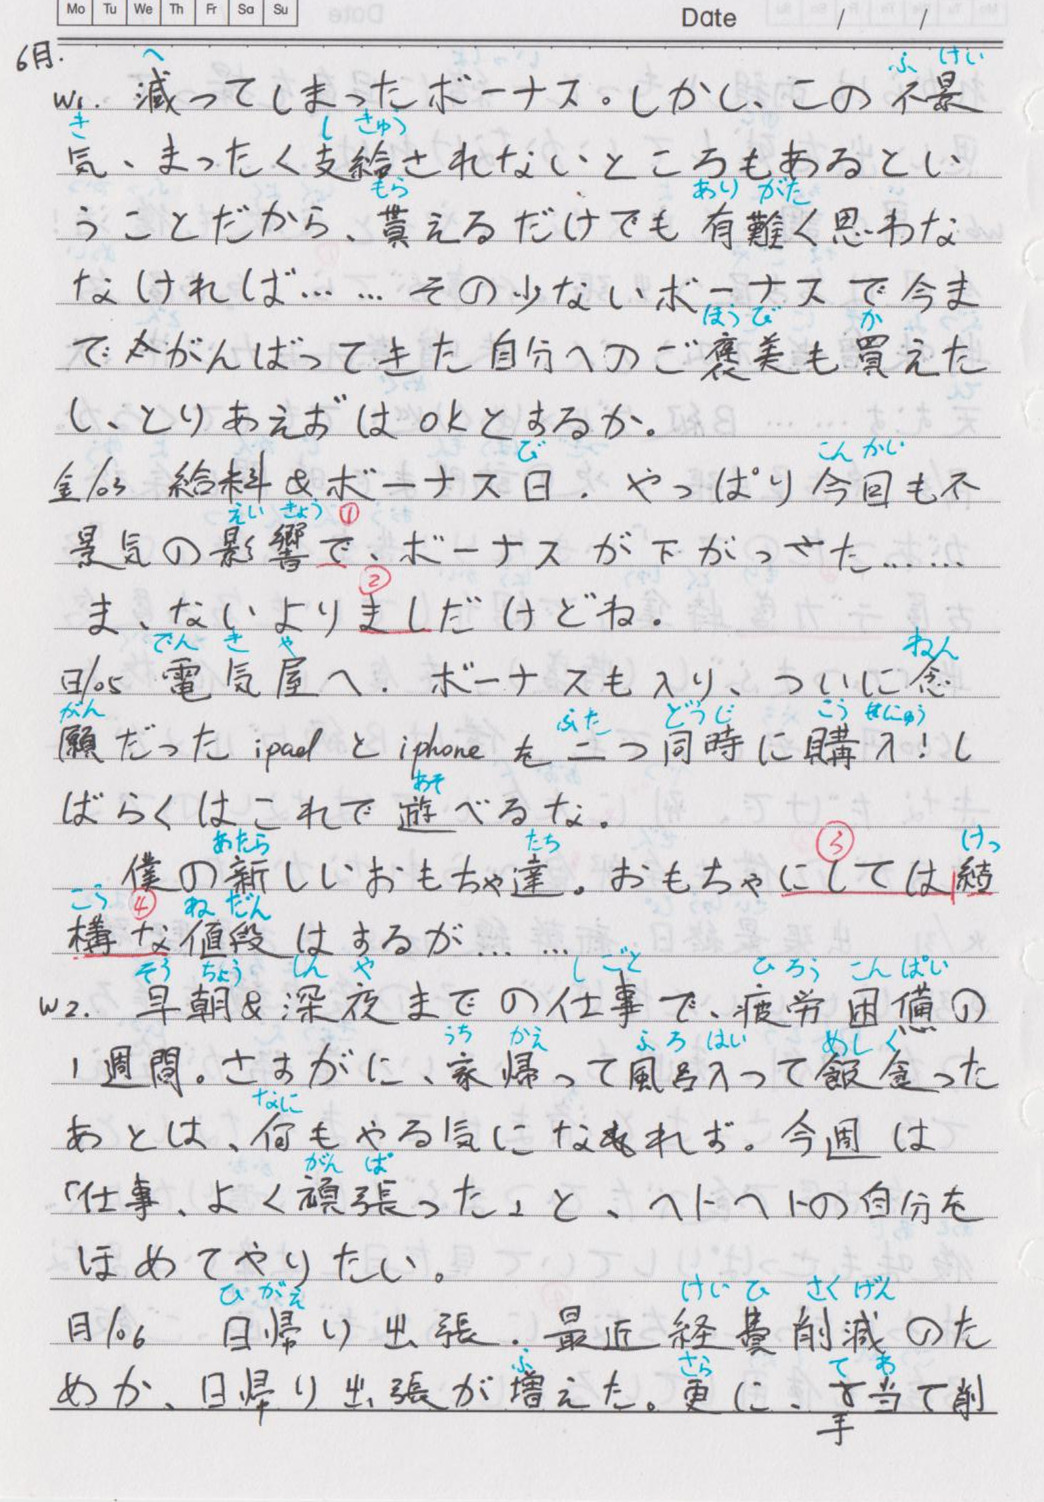 Mo Tu We Th Fr Sa Su Date / /
6月.
へ ふ けい
W1. 減ってしまったボーナス。しかし、この不景
き し きゅう
気、まったく支給されないところもあるとい
もら あり がた
うことだから、貰えるだけでも有難く思わな
なければ……その少ないボーナスで今ま
ほう び か
でがんばってきた自分へのご褒美も買えた
し、とりあえずはOKとするか。
び こん かい
金/03 給料&ボーナス日. やっぱり今回も不
えい きょう ①
景気の影響で、ボーナスが下がっさた……
②
ま、ないよりましだけどね。
でん き や ねん
日/05 電気屋へ. ボーナスも入り、ついに念
がん ふた どうじ こう にゅう
願だったipadとiphoneを二つ同時に購入!し
あそ
ばらくはこれで遊べるな。
あたら たち ③ けっ
僕の新しいおもちゃ達。おもちゃにしては結
こう ④ ね だん
構な値段はするが……
そう ちょう しん や し ごと ひ ろう こん ぱい
W2. 早朝&深夜までの仕事で、疲労困憊の
うち かえ ふ ろ はい めし く
1週間。さすがに、家帰って風呂入って飯食った
なに
あとは、何もやる気になれず。今週は
がん ば
「仕事、よく頑張った」と、ヘトヘトの自分を
ほめてやりたい。
ひ がえ けい ひ さく げん
月/06 日帰り出張. 最近経費削減のた
ふ さら て あ
めか、日帰り出張が増えた。更に、手当て削
手